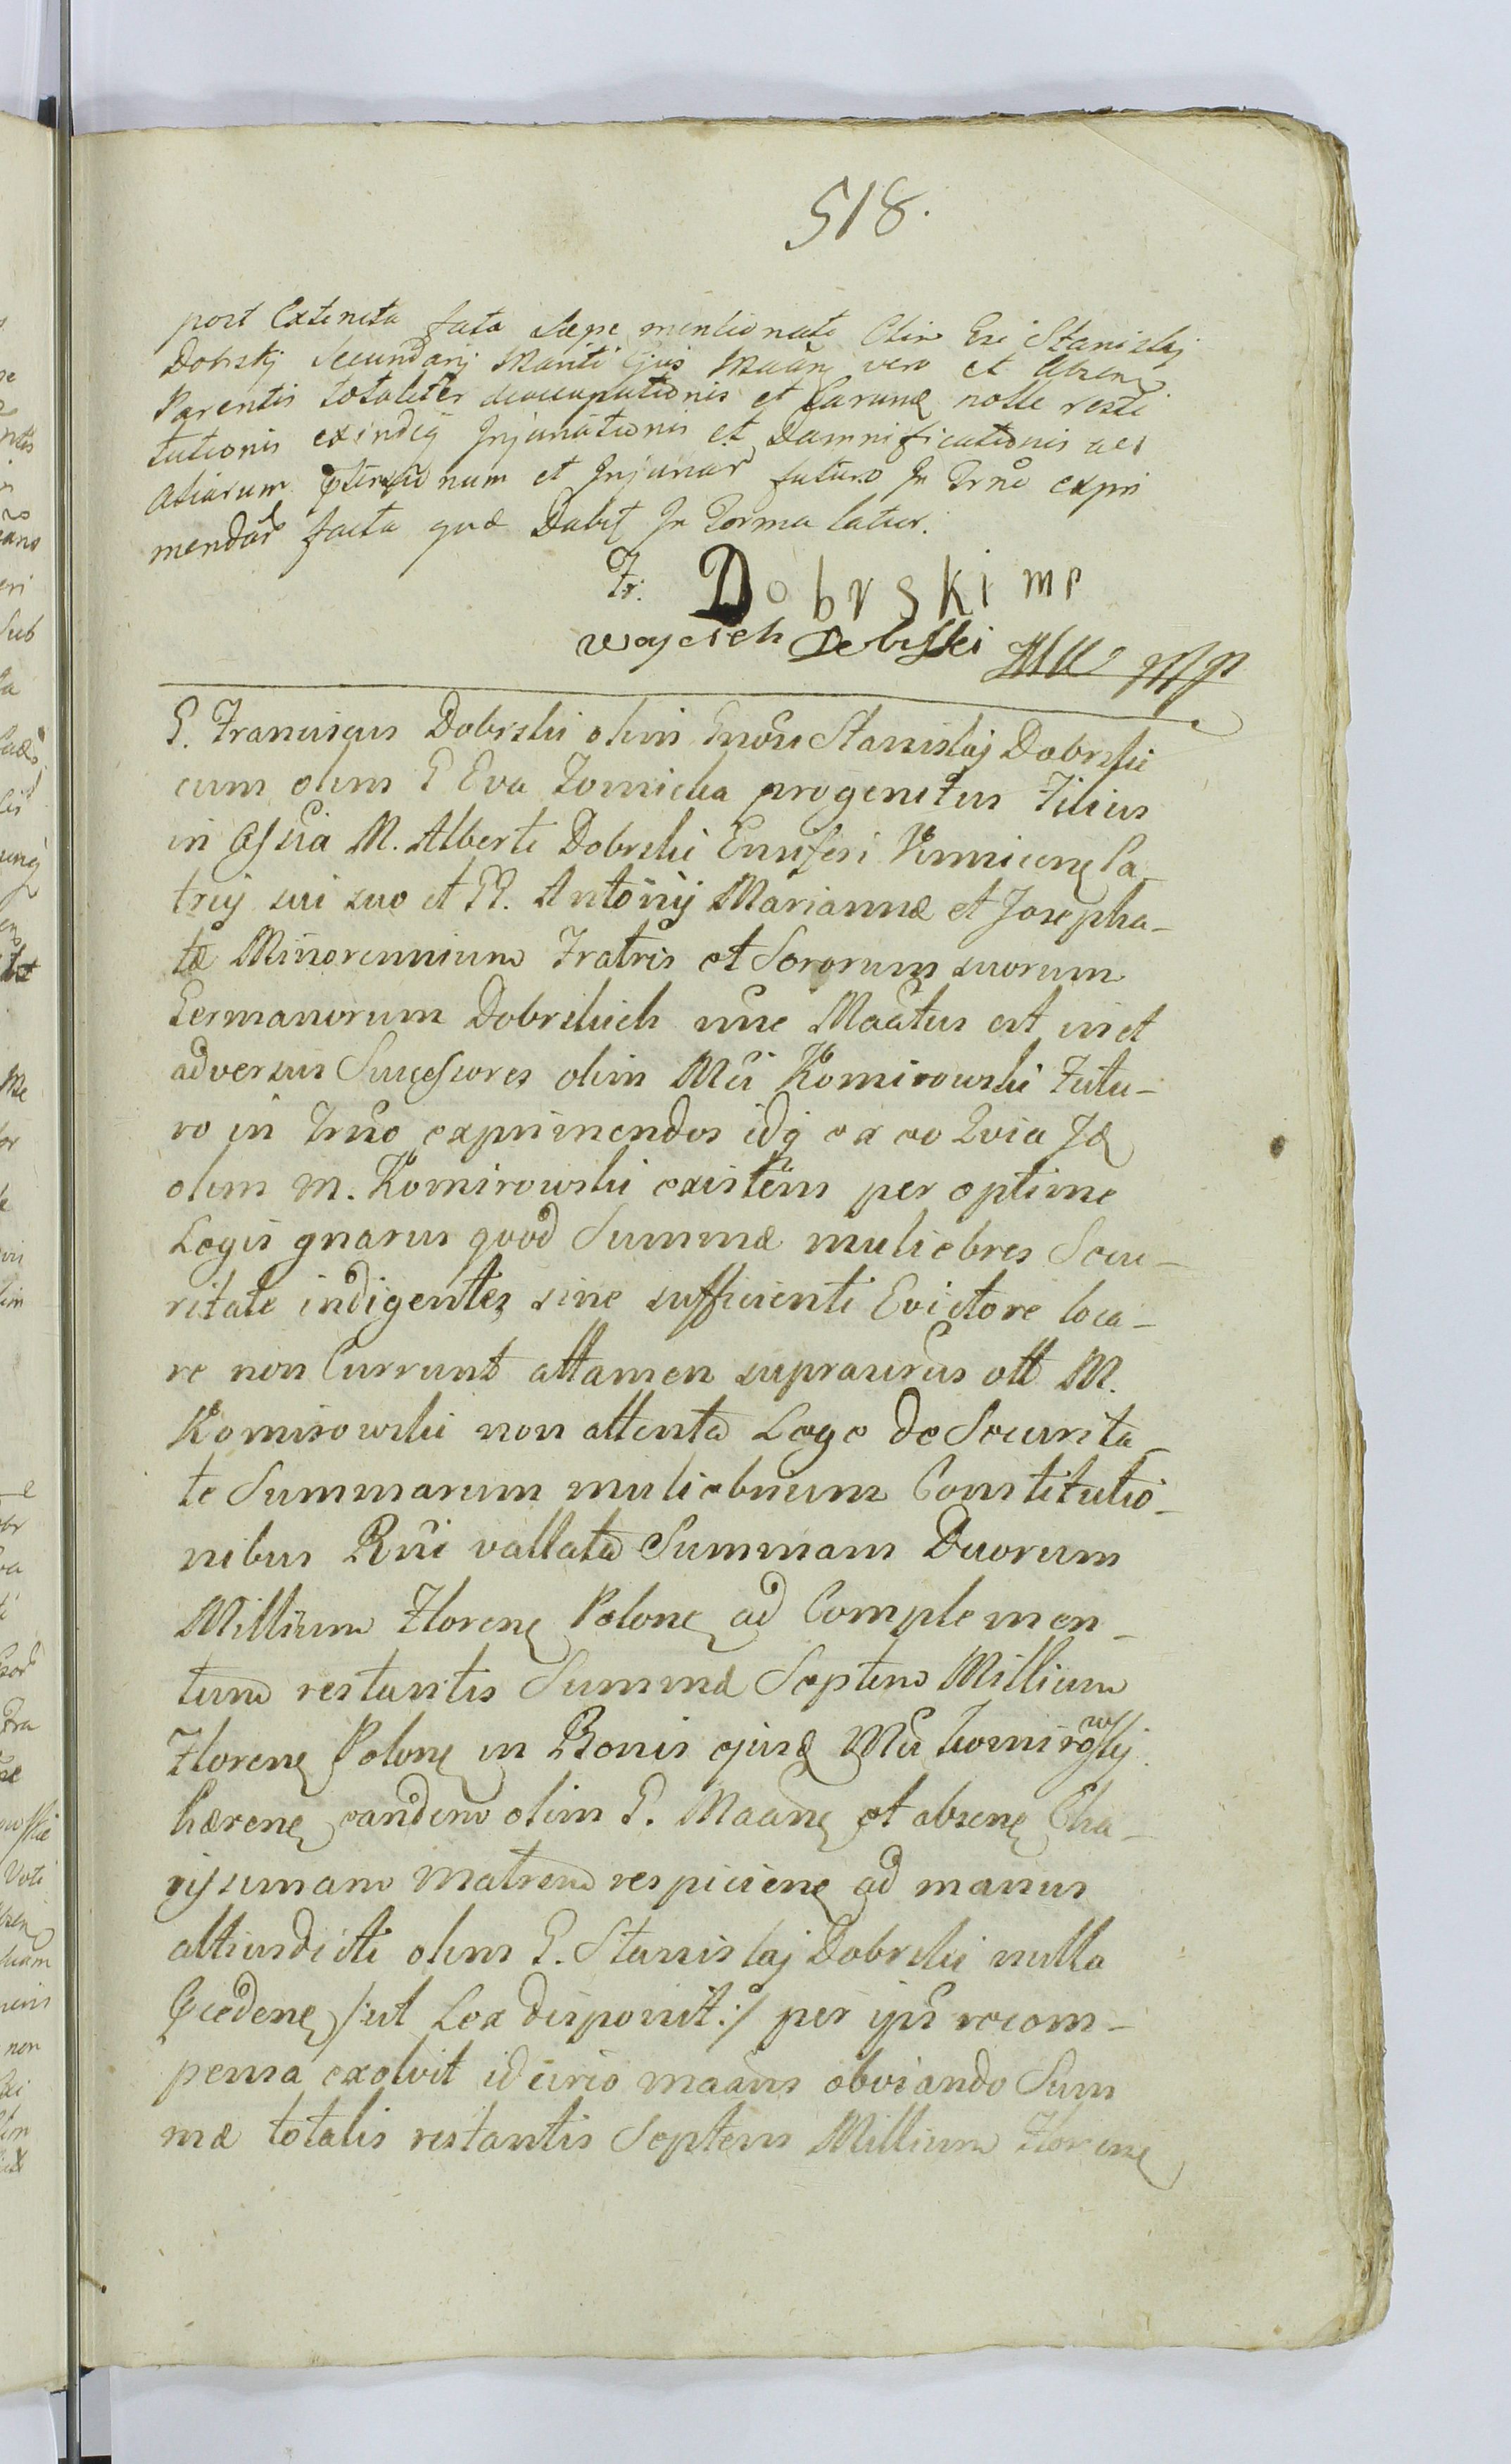 518.
post Extincta fata sæpe mentionati Olim Gsi Stanislaj
Dobrskj Secundarij Mariti Ejus Maãn vero et Absen
Parentis totaliter deoccupationis et Earund nolle resti
tutionis exindeq Injuriationis et Damnificationis ac
aliarum num et Injuriar futuro In Trño expri
mendar facta quæ Dabit In Forma latior.
Fr. Dobrski mp
Woyciech Debrsski mp
G. Franciscus Dobrski olim Gnõsi Stanislaj Dobrski
cum olim G Eva Tomicka progenitus Filius
in Assña M. Alberti Dobrski Ensiferi Winnicen Pa_
truj sui suo et GG. Antonij Mariannæ et Josepha_
tæ Minorennium Fratris et Sororum suorum
Germanorum Dobrskich nõe Maãtus est in et
adversus Successores olim Mci Komirowski Futu_
ro in Trño exprimendos idq ex eo Quia Id
olim M. Komirowski existens per optime
Legis gnarus quod Summæ muliebres Secu_
ritate indigentes sine sufficienti Evictore loca_
re non Currunt attamen suprascrtus olt M.
Komirowski non attenta Lege de Securita_
te Summarum muliebrium Constitutio_
nibus Rñi vallata Summam Duorum
Millium Floren Polon ad Complemen_
tum restantis Summæ Septem Millium
Floren Polon in Bonis ejusd Mci Komirowskj
hæren eandem olim G. Maãn et absen Cha_
rissimam Matrem respicien ad manus
altiusdicti olim G. Stanislaj Dobrski nulla
præceden /:ut Lex disponit:/ per ipm recom_
pensa exolvit idcirco maãns obviando Sum
mæ totalis restantis Septem Millium Floren